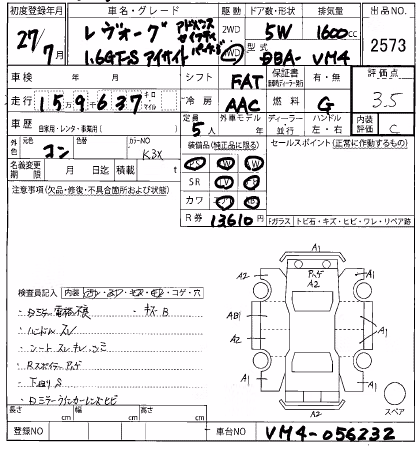 初度登録年月 車名・グレード 駆動 ドア数・形状 排気量 出品NO.
27/7月 レヴォーグ アドバンスセイフティパッケージ 2WD 5W 1600cc 2573
1.6GT-S アイサイト 4WD 型式 DBA-VM4
車検 年 月 シフト FAT 保証書 有・無 評価点
走行 159637 キロ マイル 冷房 AAC 燃料 G 3.5
車歴 自家用・レンタ・事業用( ) 定員 5人 外車モデル 年 ディーラー・並行 ハンドル 左・右 内装評価 C
外色 元色 コン 色替 カラーNO K3X 装備品(純正品に限る) セールスポイント(正常に作動するもの)
名義変更期限 月 日迄 積載 t SR
注意事項(欠品・修復・不具合箇所および状態) カワ
R券 13610円 Fガラス トビ石・キズ・ヒビ・ワレ・リペア跡
A1
A2 A2 A1
検査員記入 内装 コゲ・穴
・Dミラー電格不良 ・キズB AB1 A1
・ハンドルスレ A2
・シートスレ
・Rスポイラー
・下回りS A1 A1
・Dミラーウインカーレンズヒビ A2 スペア
長さ cm 幅 cm 高さ cm
登録NO 車台NO VM4-056232